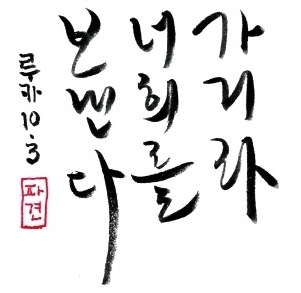 가거라
너희를
보낸다
루카 10.3
파견